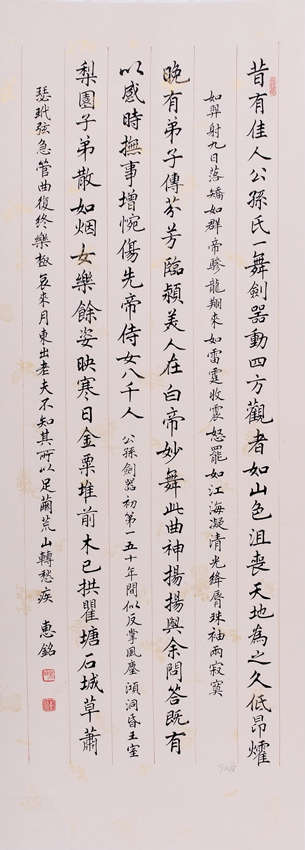 昔有佳人公孫氏一舞劍器動四方觀者如山色沮喪天地為之久低昂㸌
如羿射九日落矯如群帝驂龍翔來如雷霆收震怒罷如江海凝清光絳脣珠袖兩寂寞
晚有弟子傳芬芳臨潁美人在白帝妙舞此曲神揚揚與余問答既有
以感時撫事增惋傷先帝侍女八千人 公孫劍器初第一五十年間似反掌風塵澒洞昏王室
梨園子弟散如烟女樂餘姿映寒日金粟堆前木已拱瞿塘石城草蕭
瑟玳弦急管曲復終樂極哀來月東出老夫不知其所以足繭荒山轉愁疾 惠銘